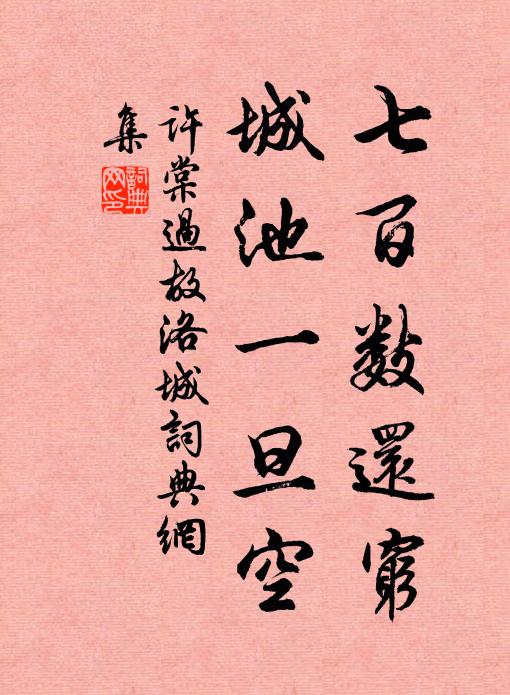 七百數還窮
城池一旦空
許棠過故洛城詞典網
集
詞典
网印